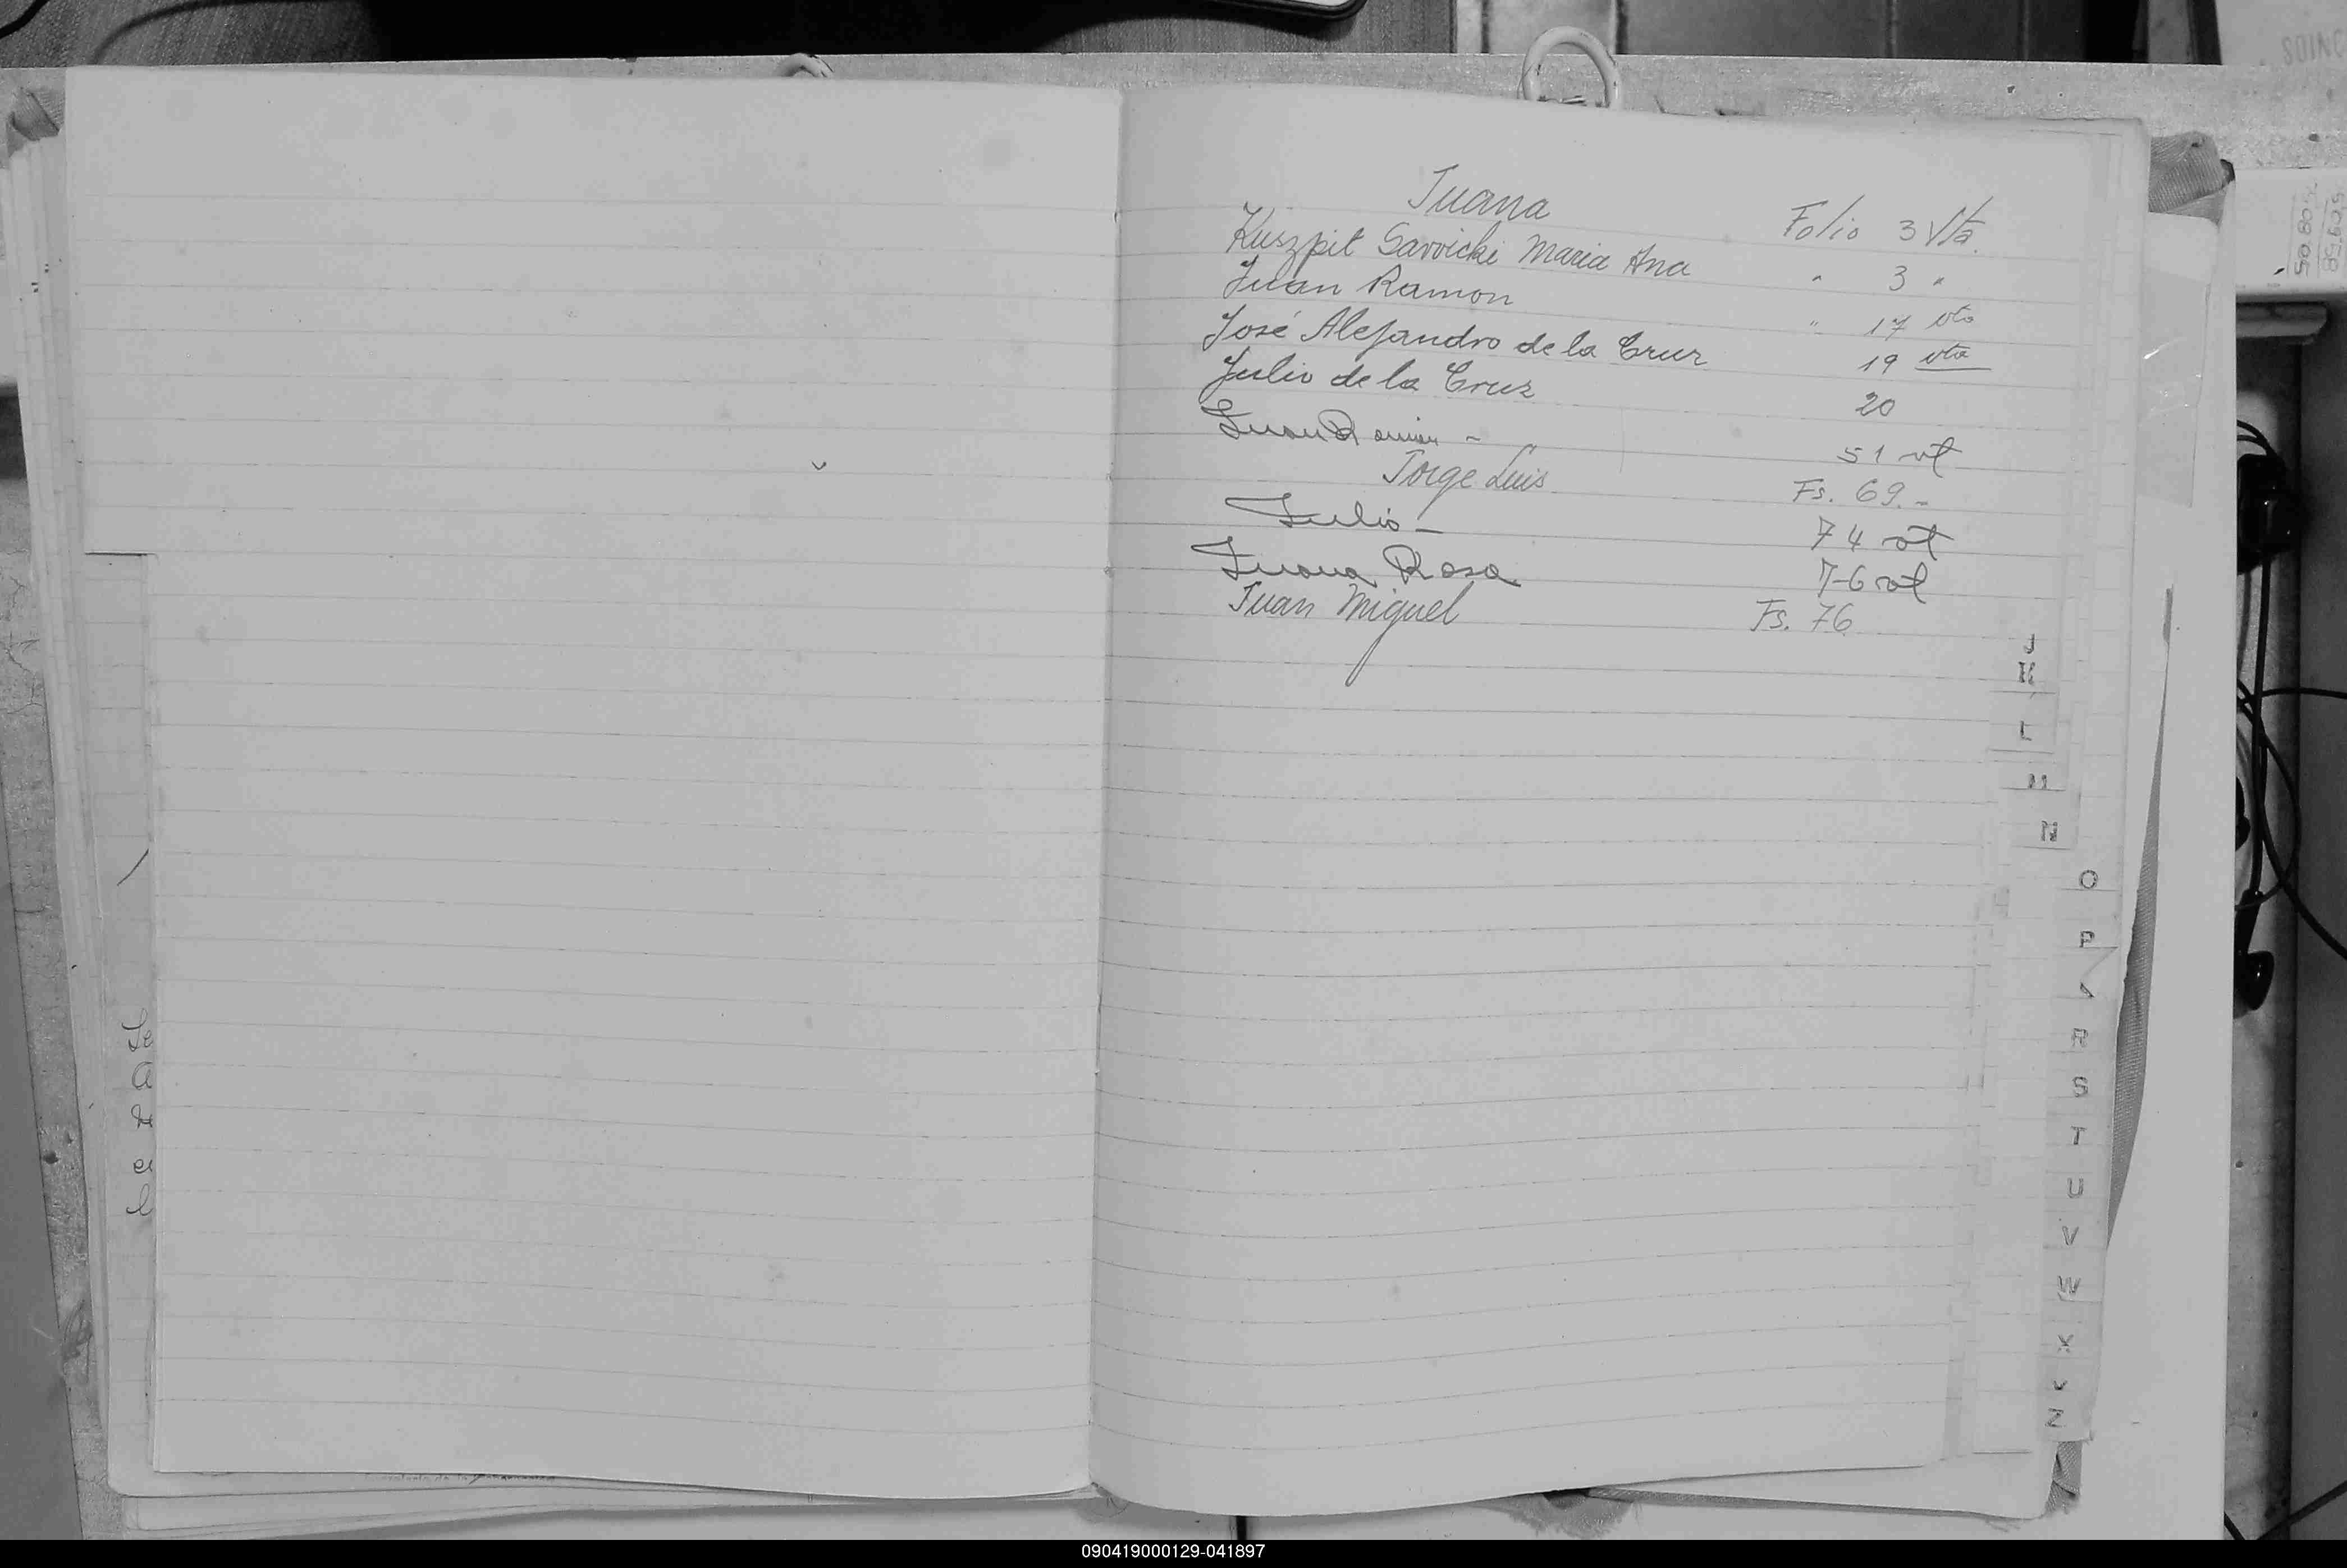 Juana Folio 3 Vta.
Kuszpit Savvicki Maria Ana " 3 "
Juan Ramon " 17 vto
José Alejandro de la Cruz 19 vta
Julio de la Cruz 20
Juan Ramon - 51 vt
Jorge Luis Fs. 69.-
Julio - 74 vt
Juana Rosa 76 vt
Juan Miguel Fs. 76
J
K
L
M
N
O
P
R
S
T
U
V
W
X
Z
090419000129-041897